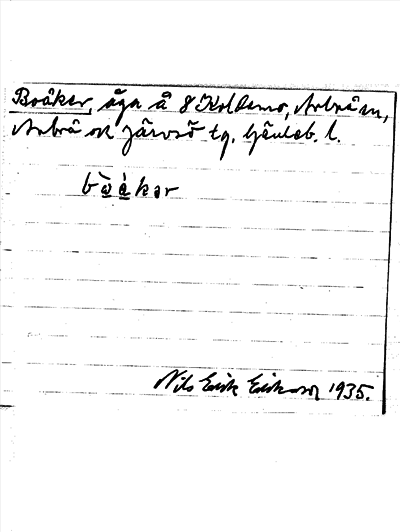 Boåker, äga å 8 Koldemo, Arbrå sn,
Arbrå ok Järvsö tg. Gävleb. l.
bòåkər
Nils Erik Eriksson 1935.